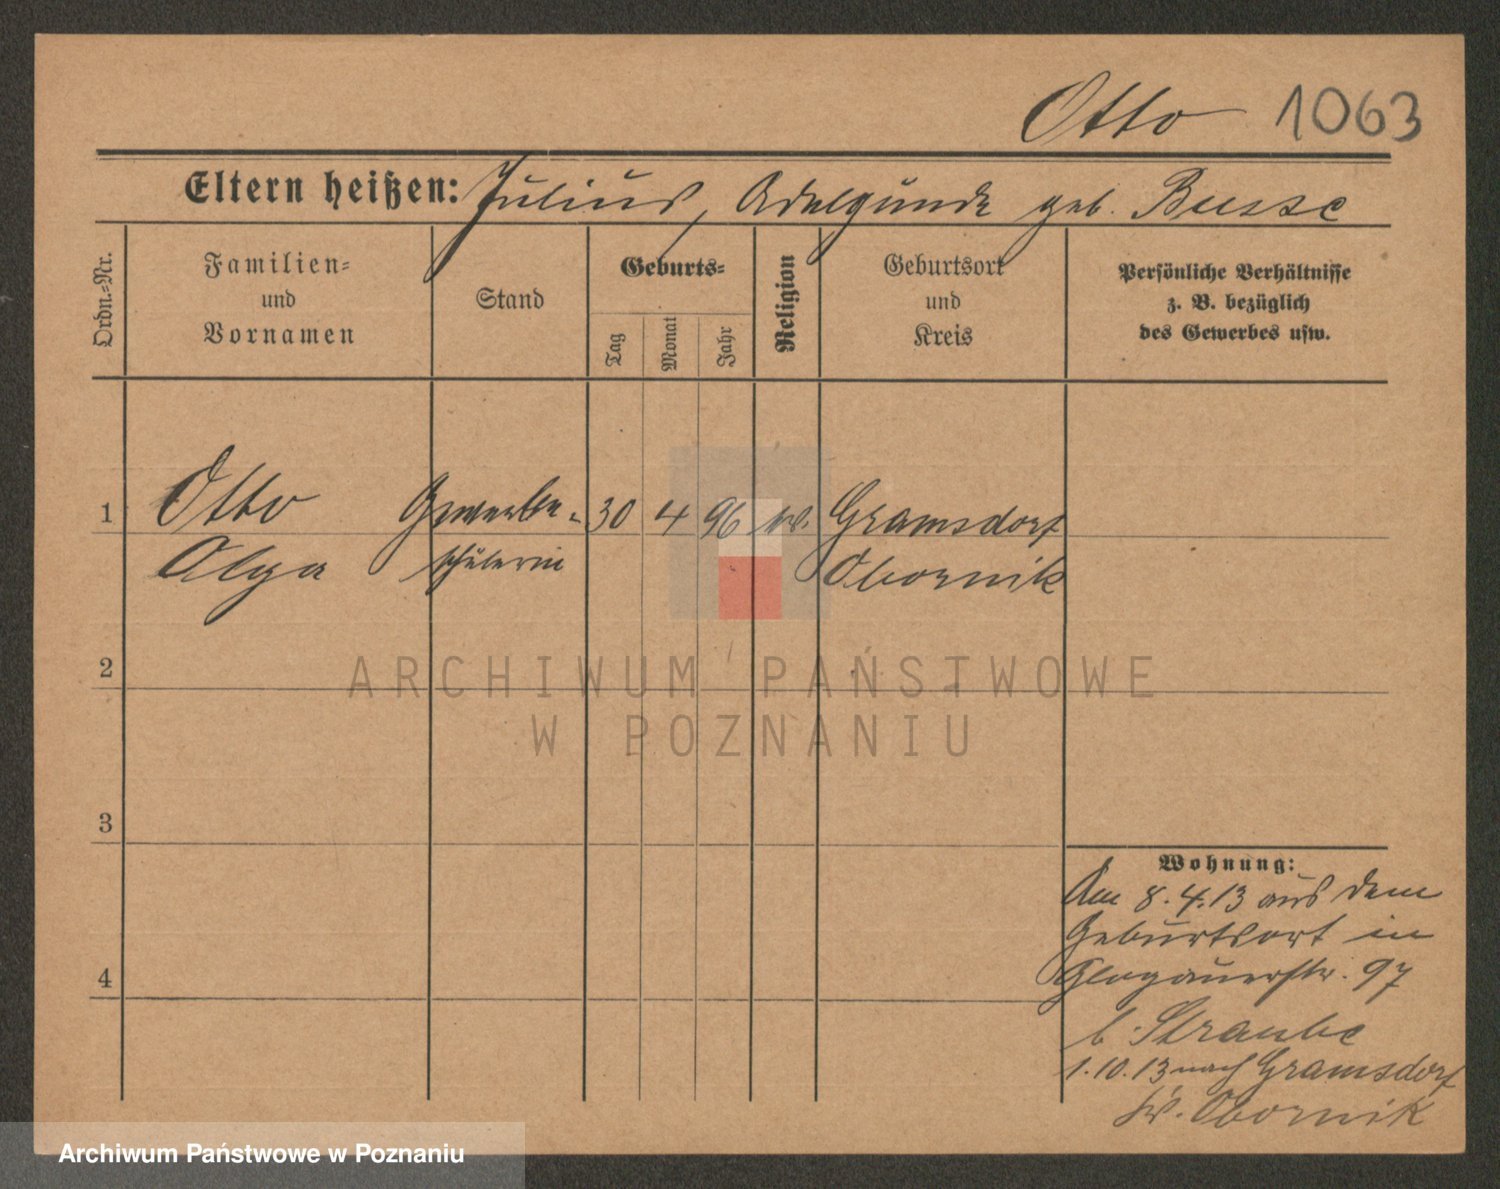 Otto 1063
Eltern heißen: Julius, Adelgunde geb. Busse
Ordn.-Nr.
Familien-
und
Vornamen
Stand
Geburts-
Tag
Monat
Jahr
Religion
Geburtsort
und
Kreis
Persönliche Verhältnisse
z. B. bezüglich
des Gewerbes usw.
1 Otto Gewerbe- 30 4 96 Gramsdorf
Olga schülerin Obornik
2
ARCHIWUM PAŃSTWOWE
W POZNANIU
3
4
Wohnung:
Am 8.4.13 aus dem
Geburtsort in
Glogauerstr. 97
b. Straube
1.10.13 nach Gramsdorf
Obornik
Archiwum Państwowe w Poznaniu